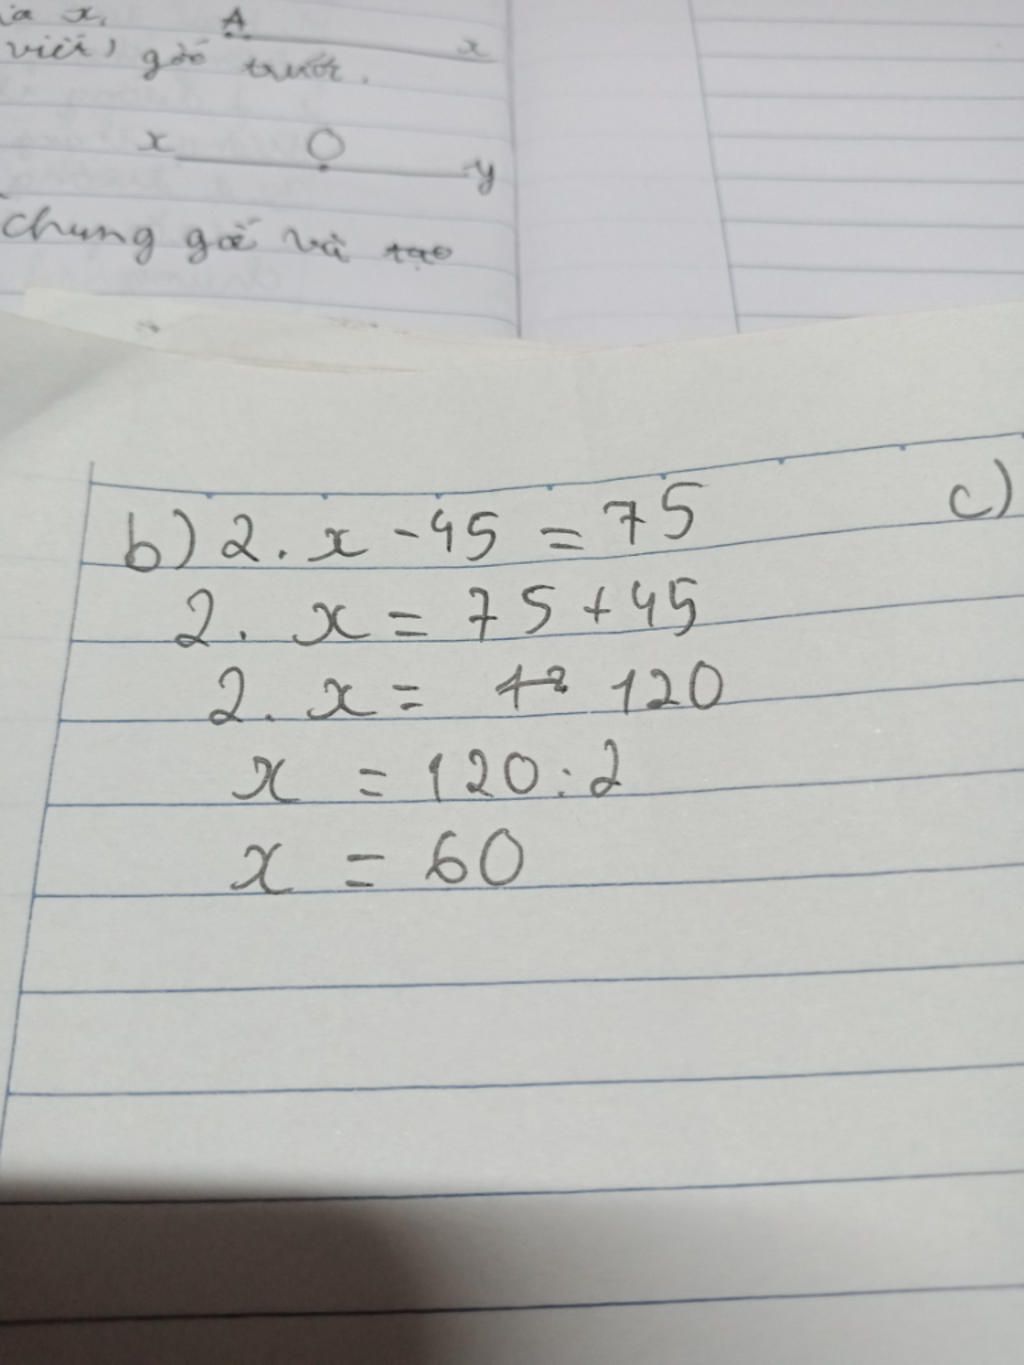 ia x.
A x
viết) gốc trước.
x O y
chung gốc và tạo
b) 2. x - 45 = 75
c)
2. x = 75 + 45
2. x = 120
x = 120 : 2
x = 60